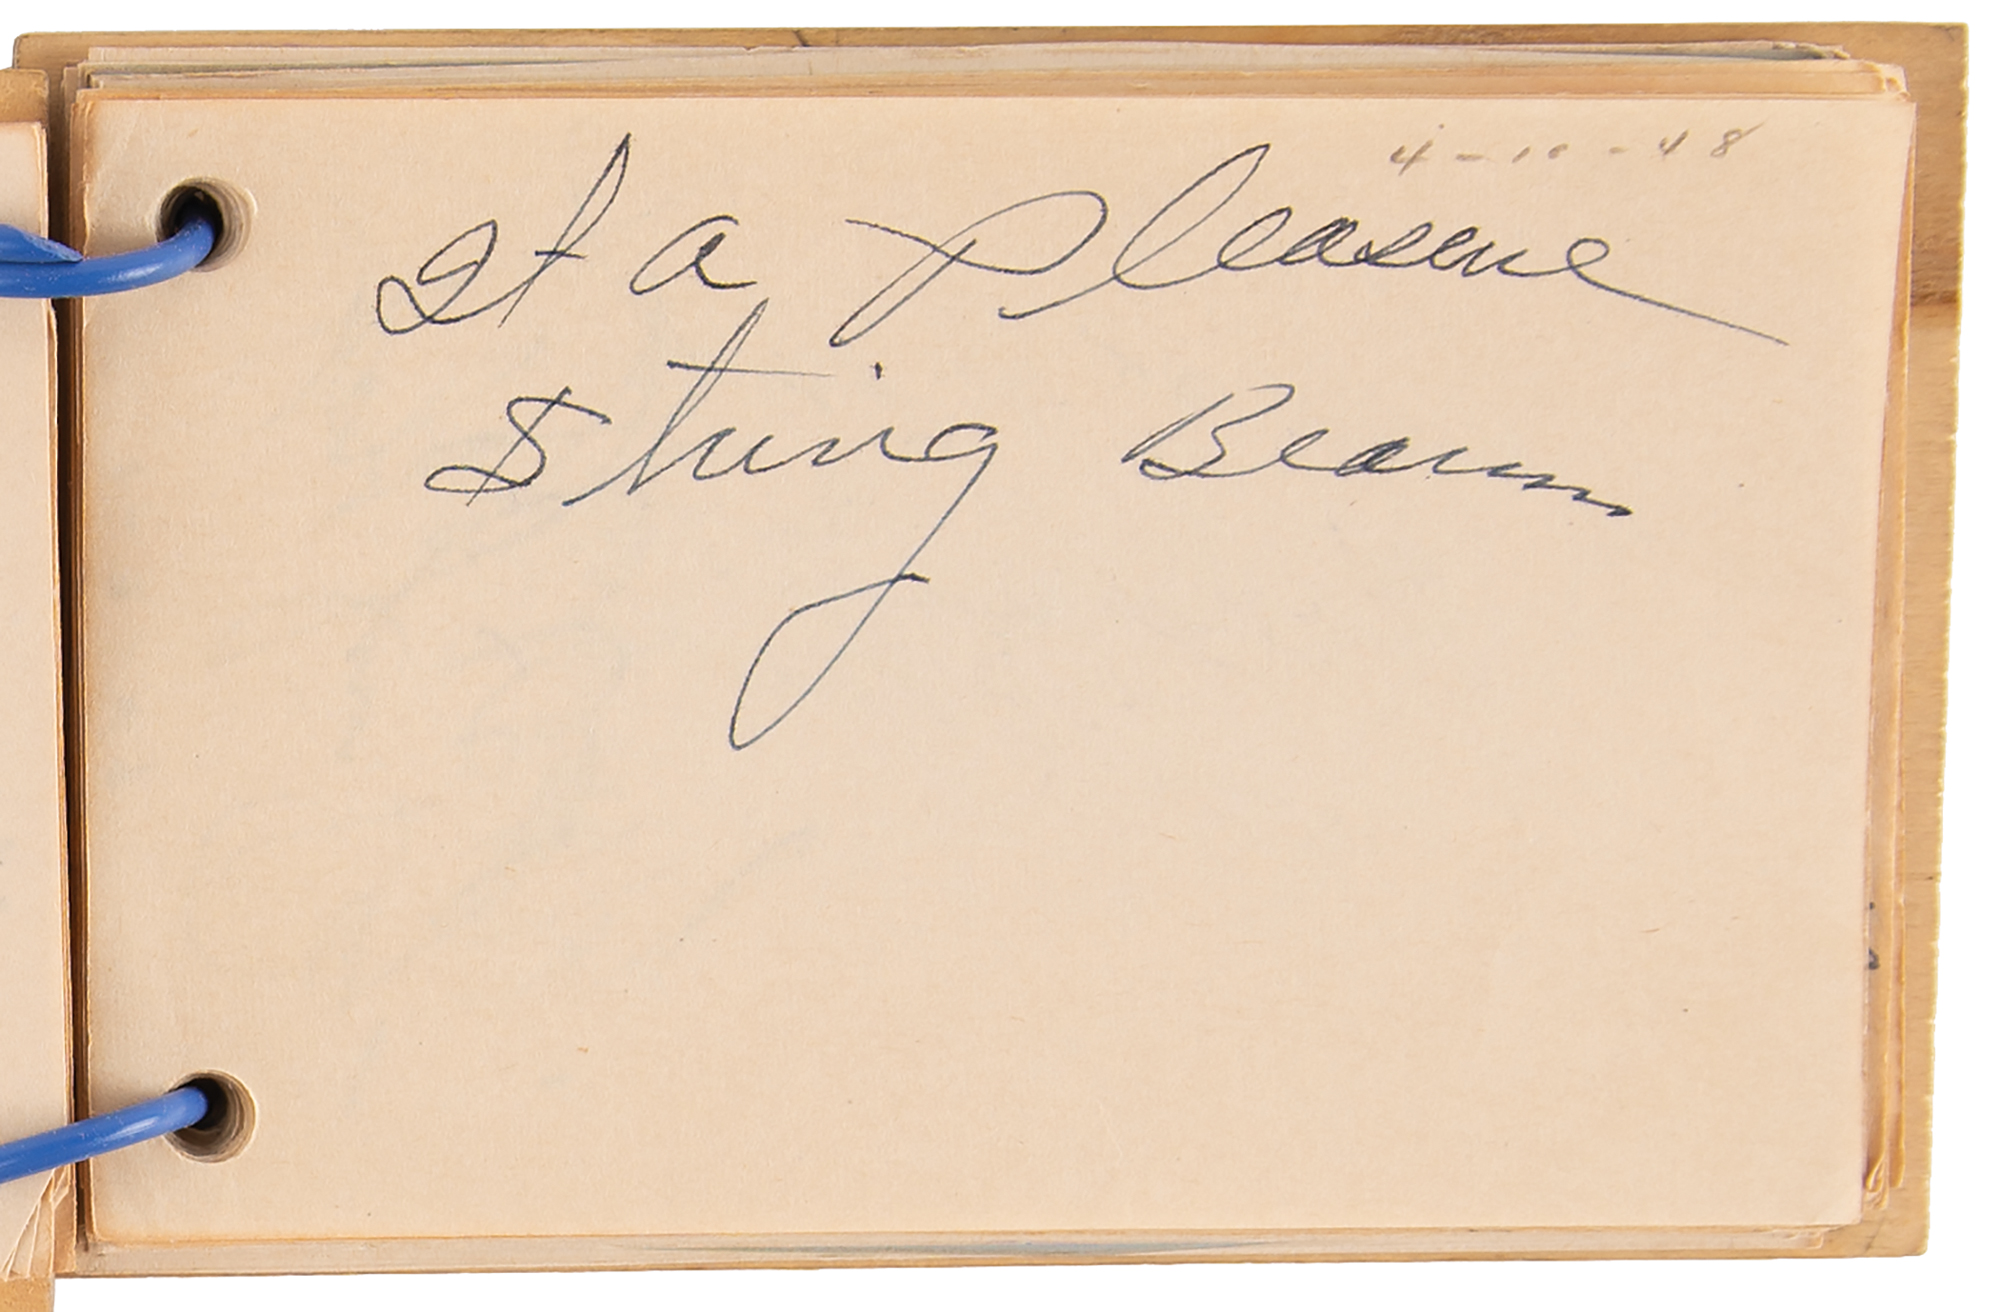 4-10-48
It a Pleasure
String Beans